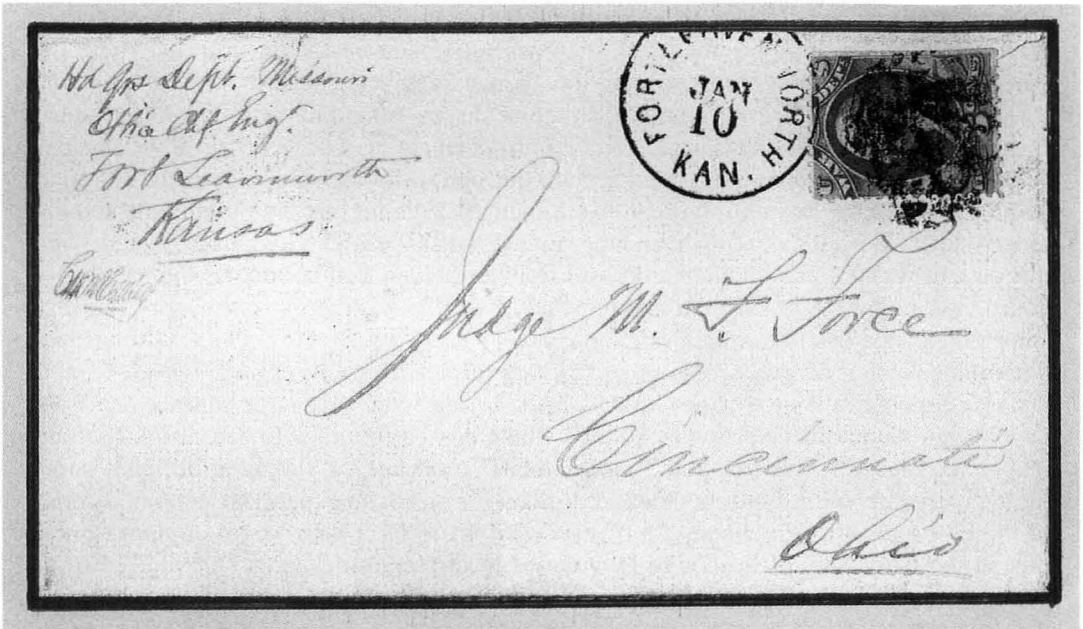 Hd qrs Dept. Missouri
Office Chf. Engr.
Fort Leavenworth
Kansas
FORT LEAVENWORTH
JAN
10
KAN.
Judge M. F. Force
Cincinnati
Ohio